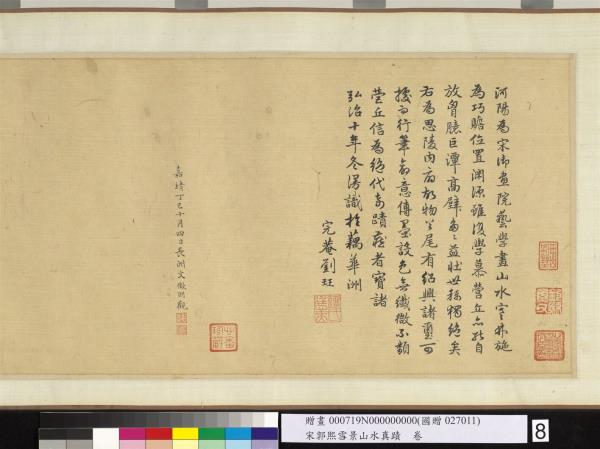 河陽為宋御畫院藝學畫山水寒林施
為巧贍位置淵源雖復學慕營丘亦能自
放胷臆巨潭高壁多多益壯世稱獨絕矣
右為思陵內府故物首尾有紹興諸璽可
據而行筆命意傳墨設色無纖微不類
營丘信為絕代奇蹟藏者寶諸
弘治十年冬得識於藕華洲
完菴劉珏
嘉靖丁巳十月四日長洲文徵明觀
贈畫 000719N000000000(國贈 027011)
宋郭熙雪景山水真蹟 卷
8